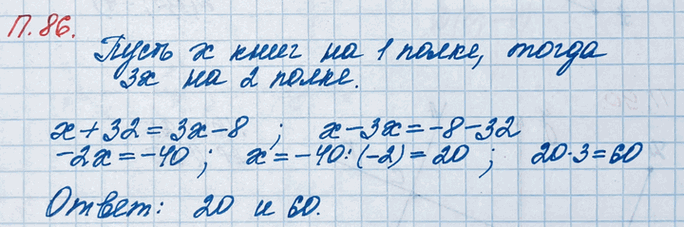 П.86.
Пусть x книг на 1 полке, тогда
3x на 2 полке.
x+32=3x-8 ; x-3x=-8-32
-2x=-40 ; x=-40:(-2)=20 ; 20·3=60
Ответ: 20 и 60.